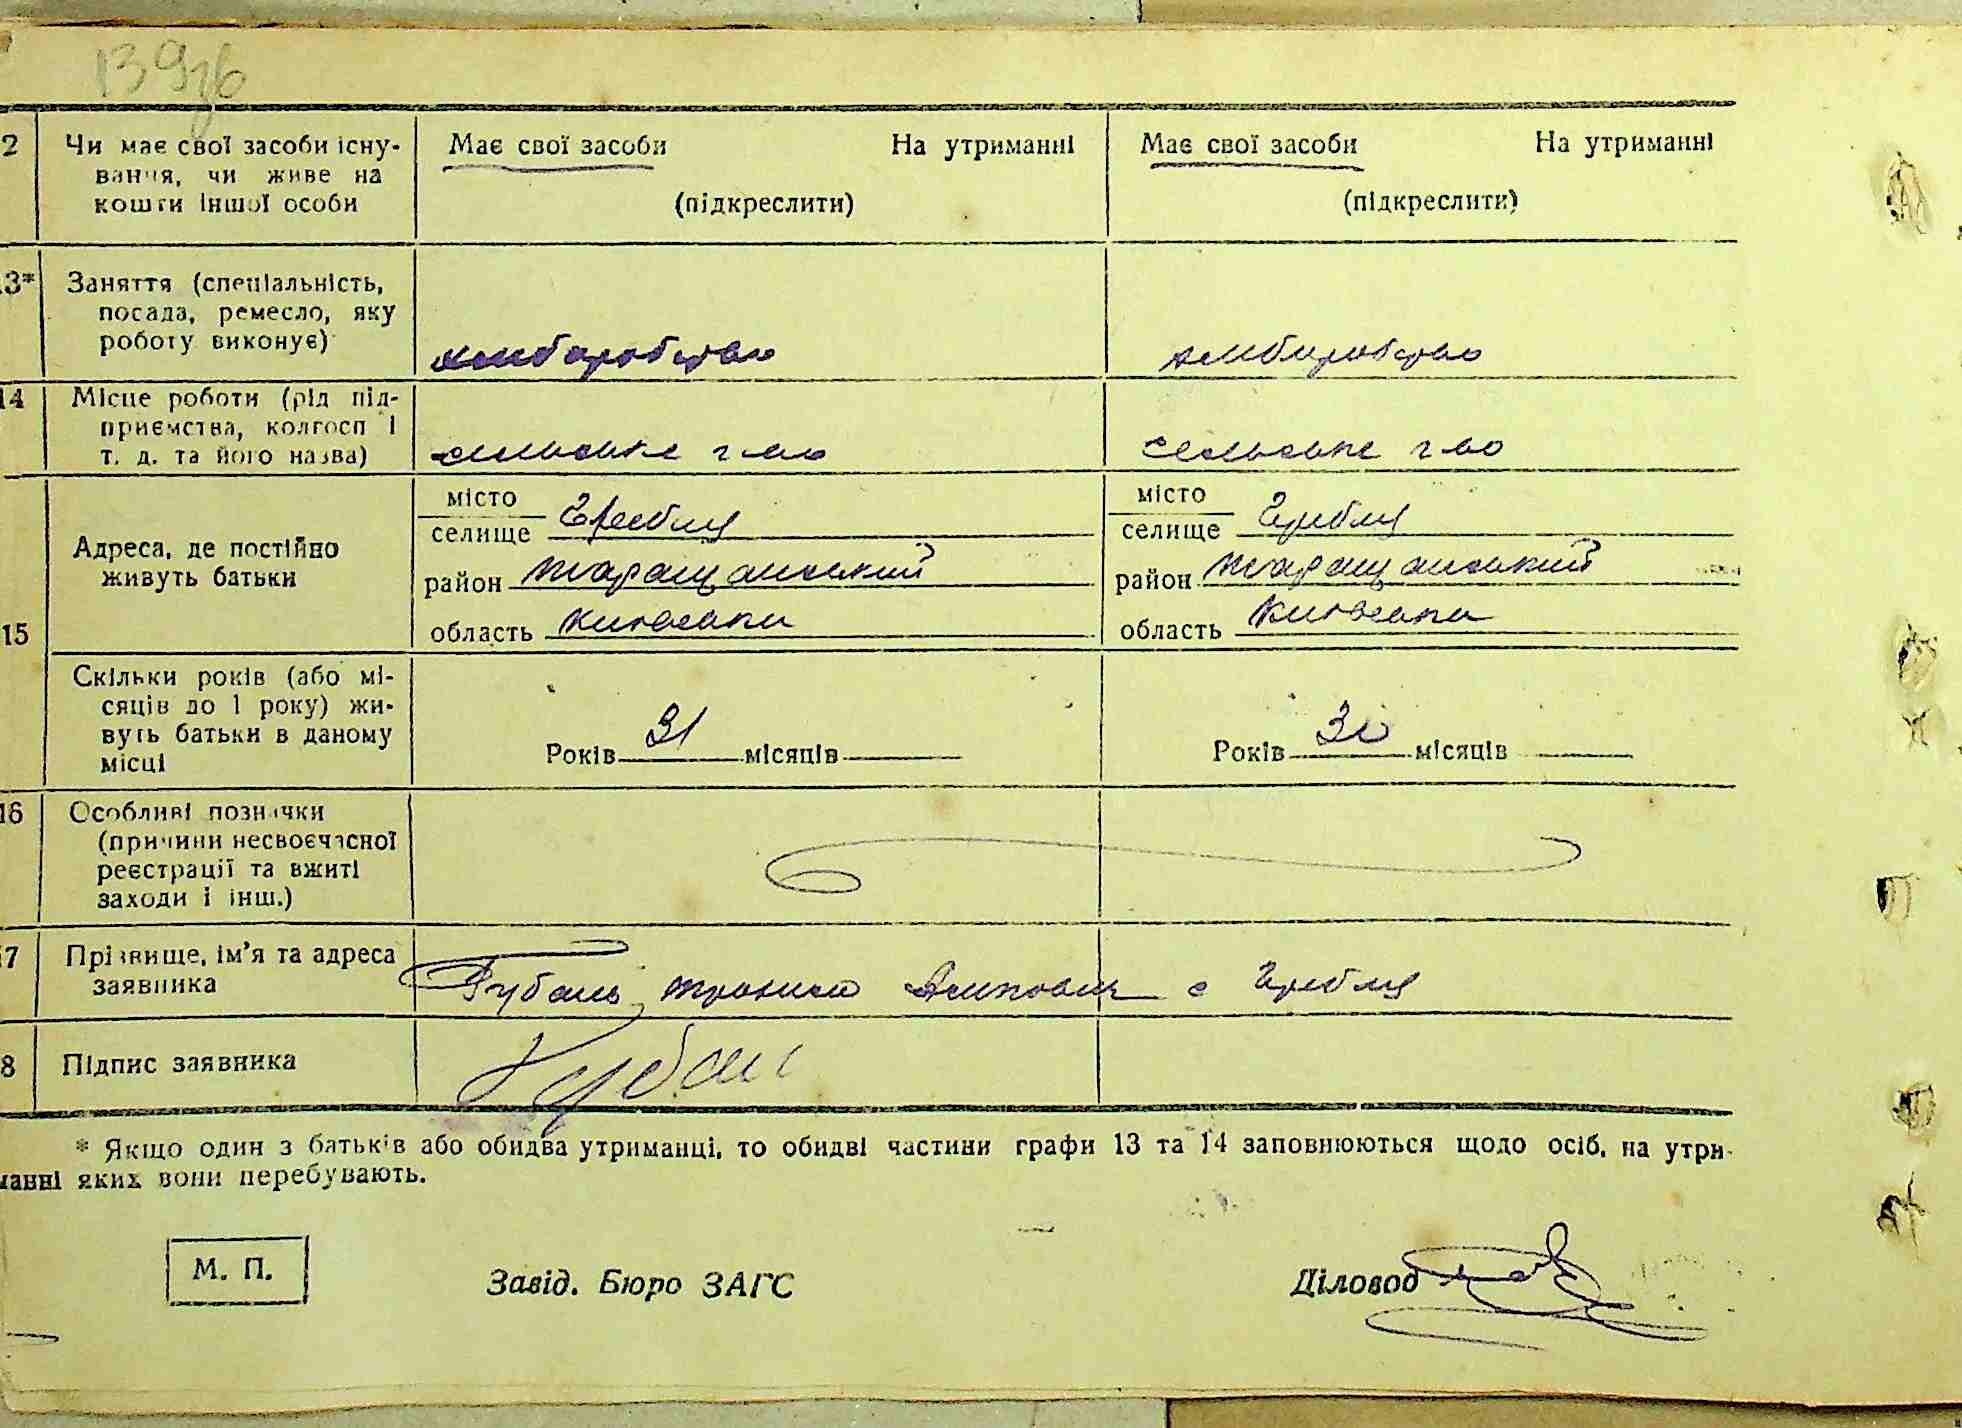 139зв
2 Чи має свої засоби існу- Має свої засоби На утриманні Має свої засоби На утриманні
вання, чи живе на
кошти іншої особи (підкреслити) (підкреслити)
13* Заняття (спеціальність,
посада, ремесло, яку
роботу виконує) хліборобство хліборобство
14 Місце роботи (рід під-
приємства, колгосп і
т. д. та його назва) сельське г-во сельське г-во
15 Адреса, де постійно
живуть батьки
місто
селище Гребля
район Таращанський
область Київська
місто
селище Гребля
район Таращанський
область Київська
Скільки років (або мі-
сяців до 1 року) жи-
вуть батьки в даному
місці
Років 31 місяців Років 30 місяців
16 Особливі позначки
(причини несвоєчасної
реєстрації та вжиті
заходи і інш.)
17 Прізвище, ім'я та адреса
заявника
Губань с Гребля
8 Підпис заявника Губань
* Якщо один з батьків або обидва утриманці, то обидві частини графи 13 та 14 заповнюються щодо осіб, на утри-
манні яких вони перебувають.
М. П. Завід. Бюро ЗАГС Діловод